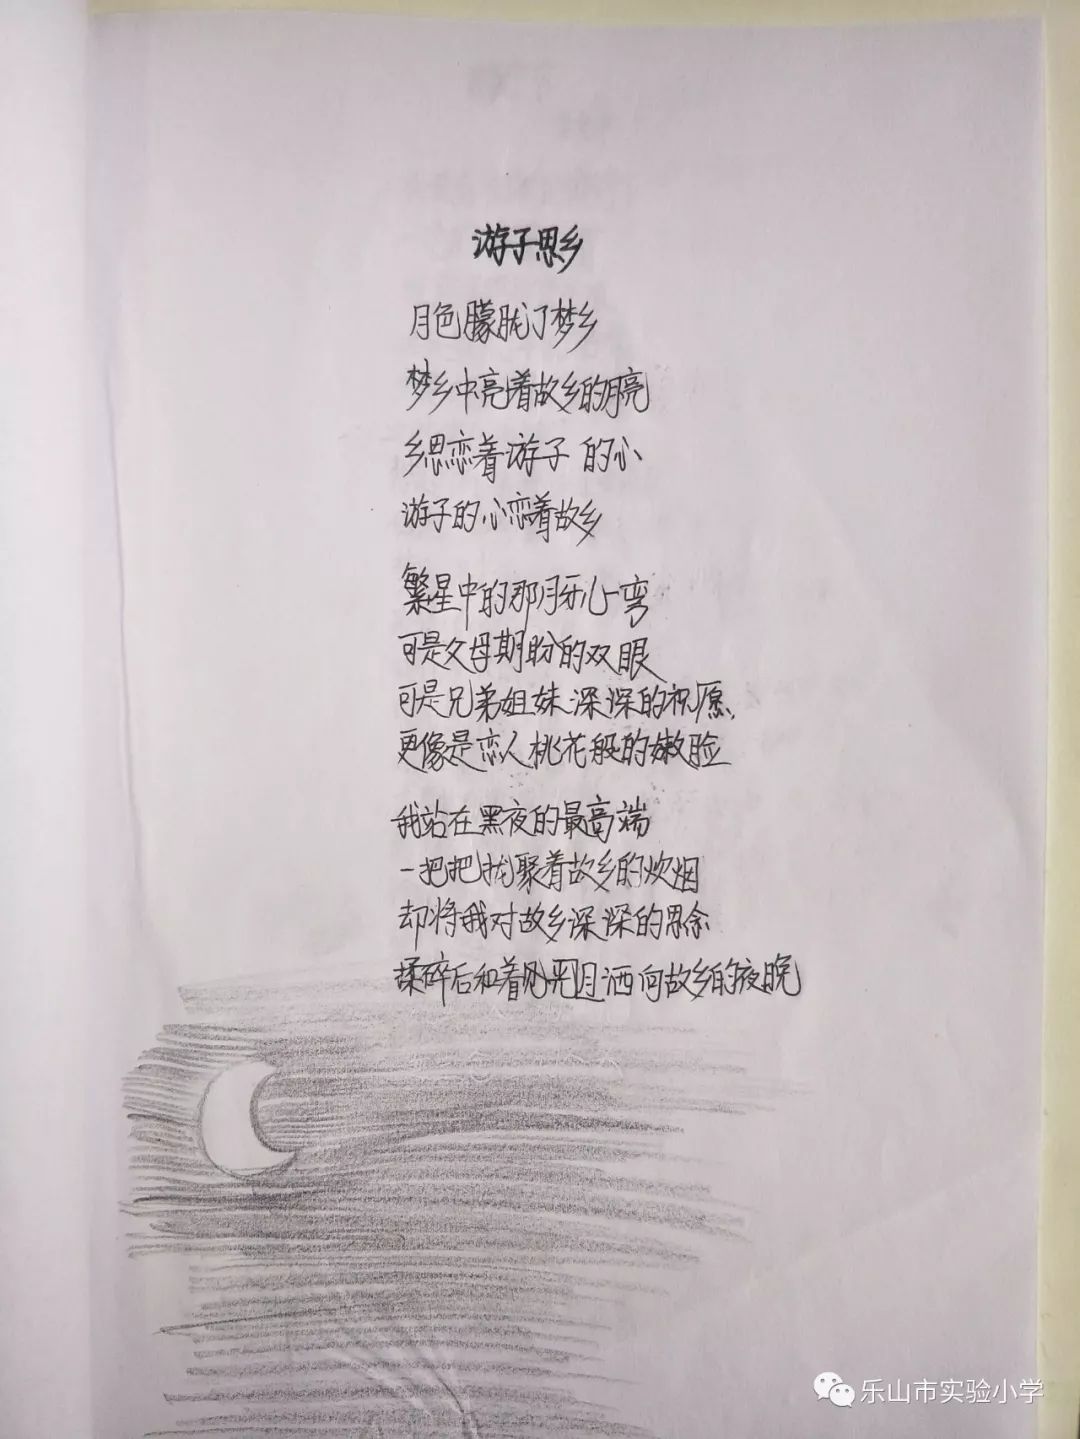 游子思乡
月色朦胧了梦乡
梦乡中亮着故乡的月亮
乡思恋着游子的心
游子的心恋着故乡
繁星中的那月牙儿一弯
可是父母期盼的双眼
可是兄弟姐妹深深的祝愿,
更像是恋人桃花般的嫩脸
我站在黑夜的最高端
一把把拢聚着故乡的炊烟
却将我对故乡深深的思念
揉碎后和着洒向故乡的夜晚
乐山市实验小学